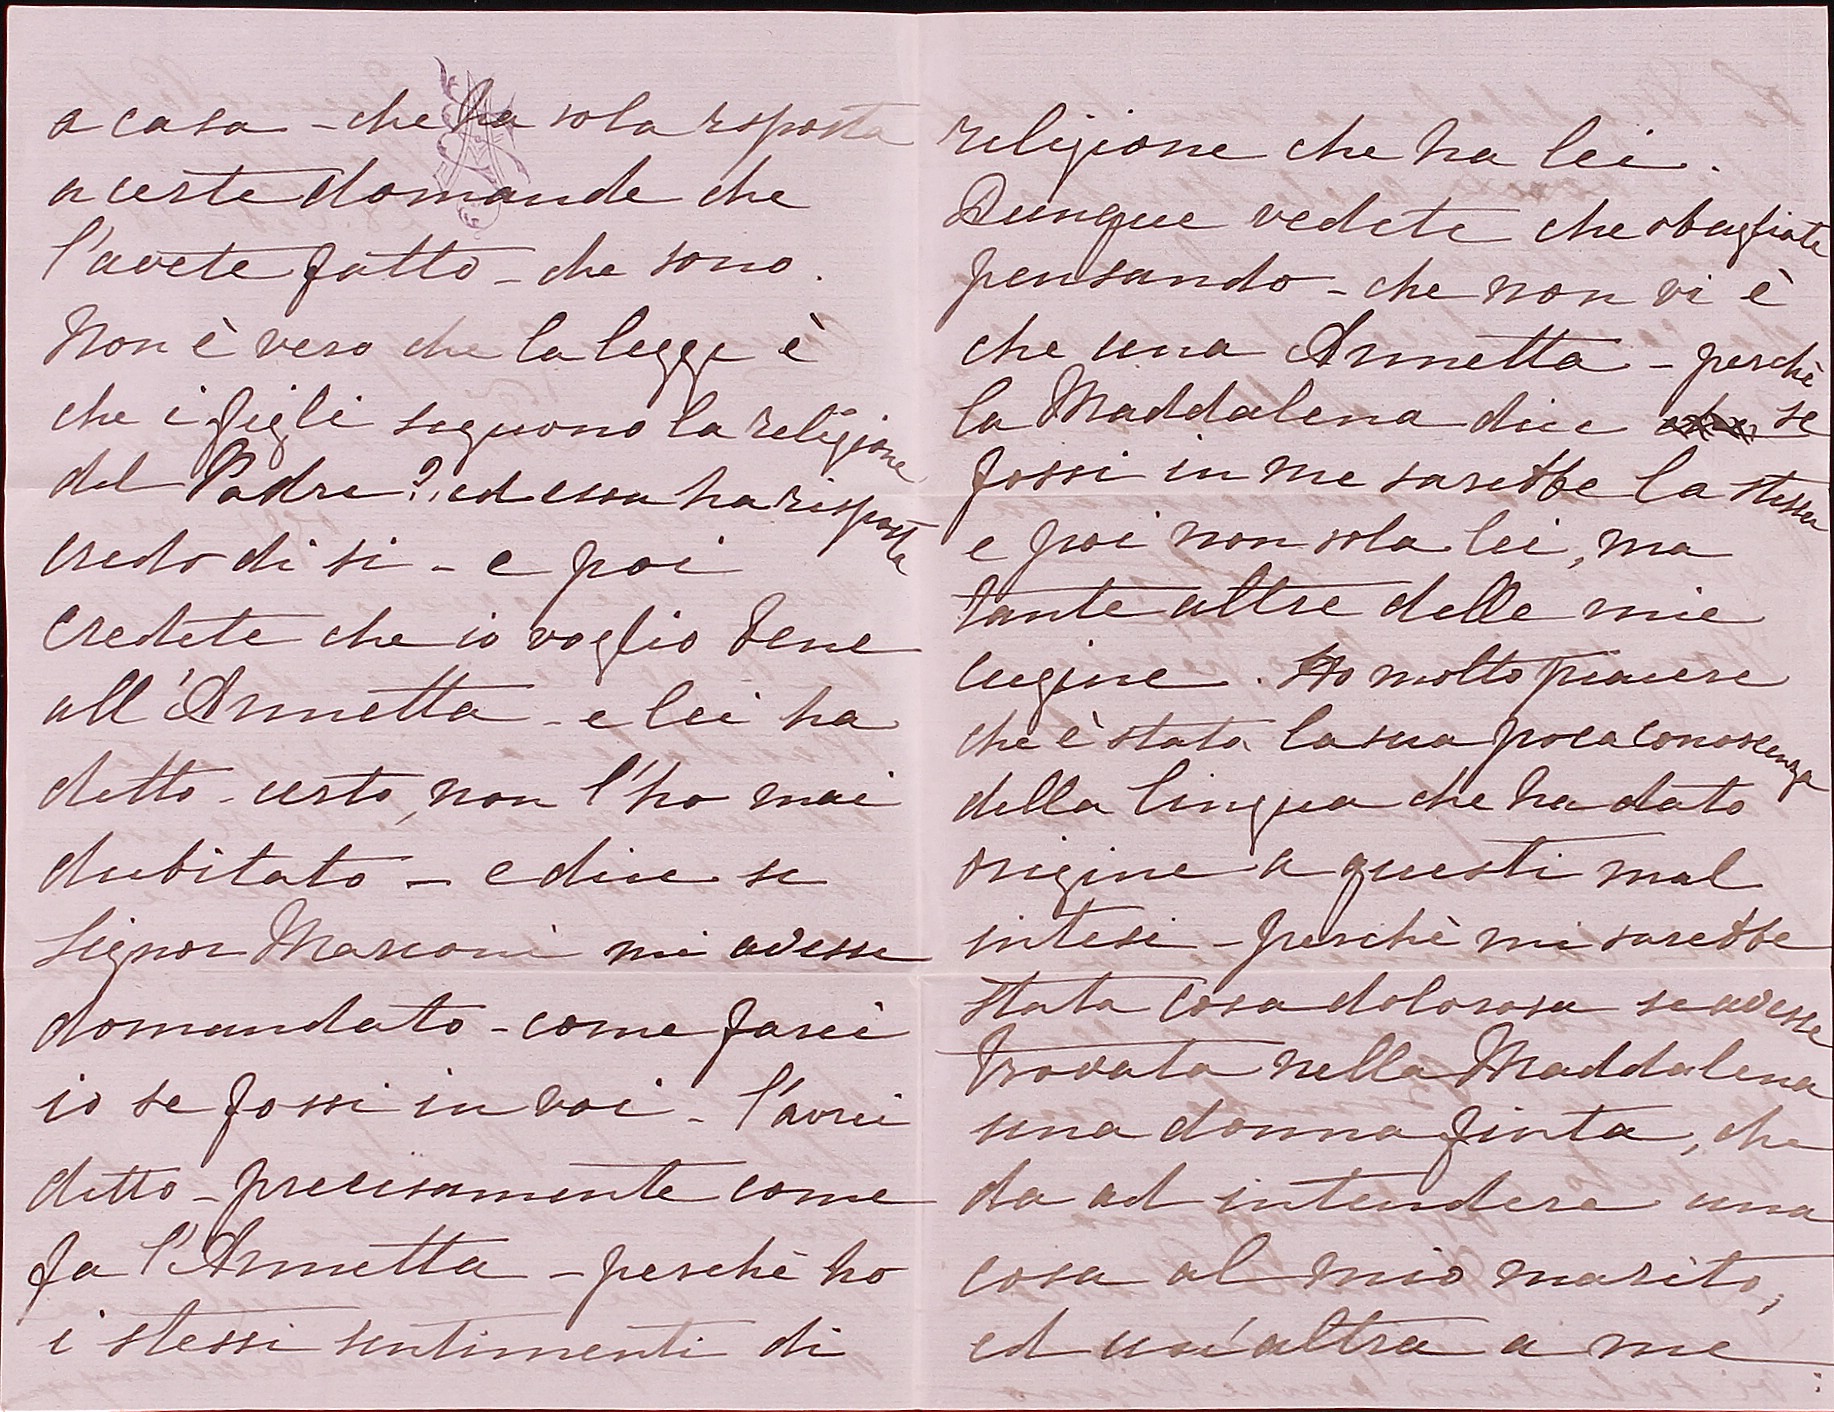 a casa – che ha sola risposta
a certe domande che
l'avete fatto – che sono.
Non è vero che la legge è
che i figli seguono la religione
del Padre? ed essa ha risposta
credo di si – e poi
credete che io voglio bene
all'Annetta – e lei ha
detto – certo, non l'ho mai
dubitato – e dice se
Signor Marconi mi avesse
domandato – come farei
io se fossi in voi – l'avrei
detto – precisamente come
fa l'Annetta – perchè ho
i stessi sentimenti di
religione che ha lei.
Dunque vedete che sbagliate
pensando – che non vi è
che una Annetta – perchè
la Maddalena dice se
fossi in me sarebbe la stessa
e poi non sola lei, ma
tante altre delle mie
cugine. Ho molto piacere
che è stata la sua poca conoscenza
della lingua che ha dato
origine a questi mal
intesi – perchè mi sarebbe
stata cosa dolorosa se avesse
trovata nella Maddalena
una donna finta, che
da ad intendere una
cosa al mio marito,
ed un'altra a me